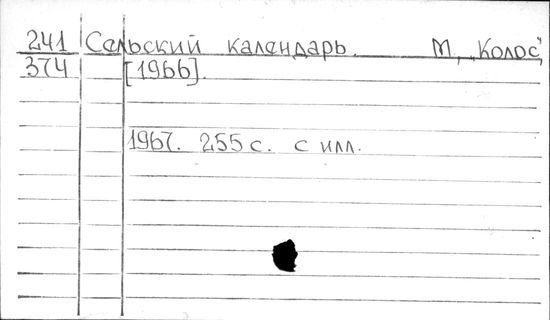 241 Сельский календарь. М, „Колос",
374 [1966].
1967. 255 с. с илл.